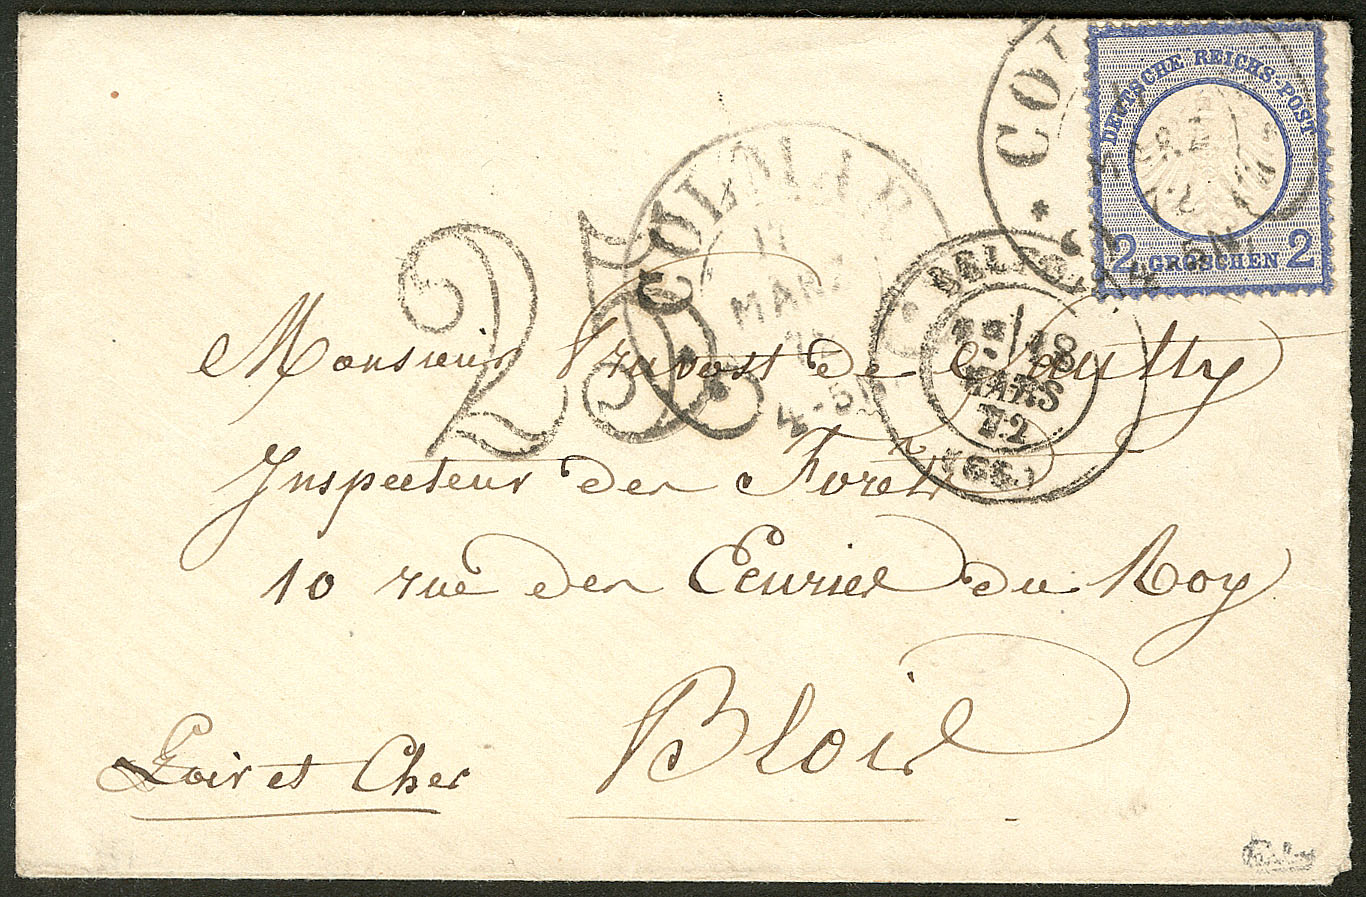 DEUTSCHE REICHS-POST
2 GROSCHEN 2
COLMAR
17
MARZ
4-5
25
BELFORT
18
MARS
72
(66)
Monsieur Pruvost de Saulty
Inspecteur des Forêts
10 rue des Ecuries du Roy
Blois
Loir et Cher